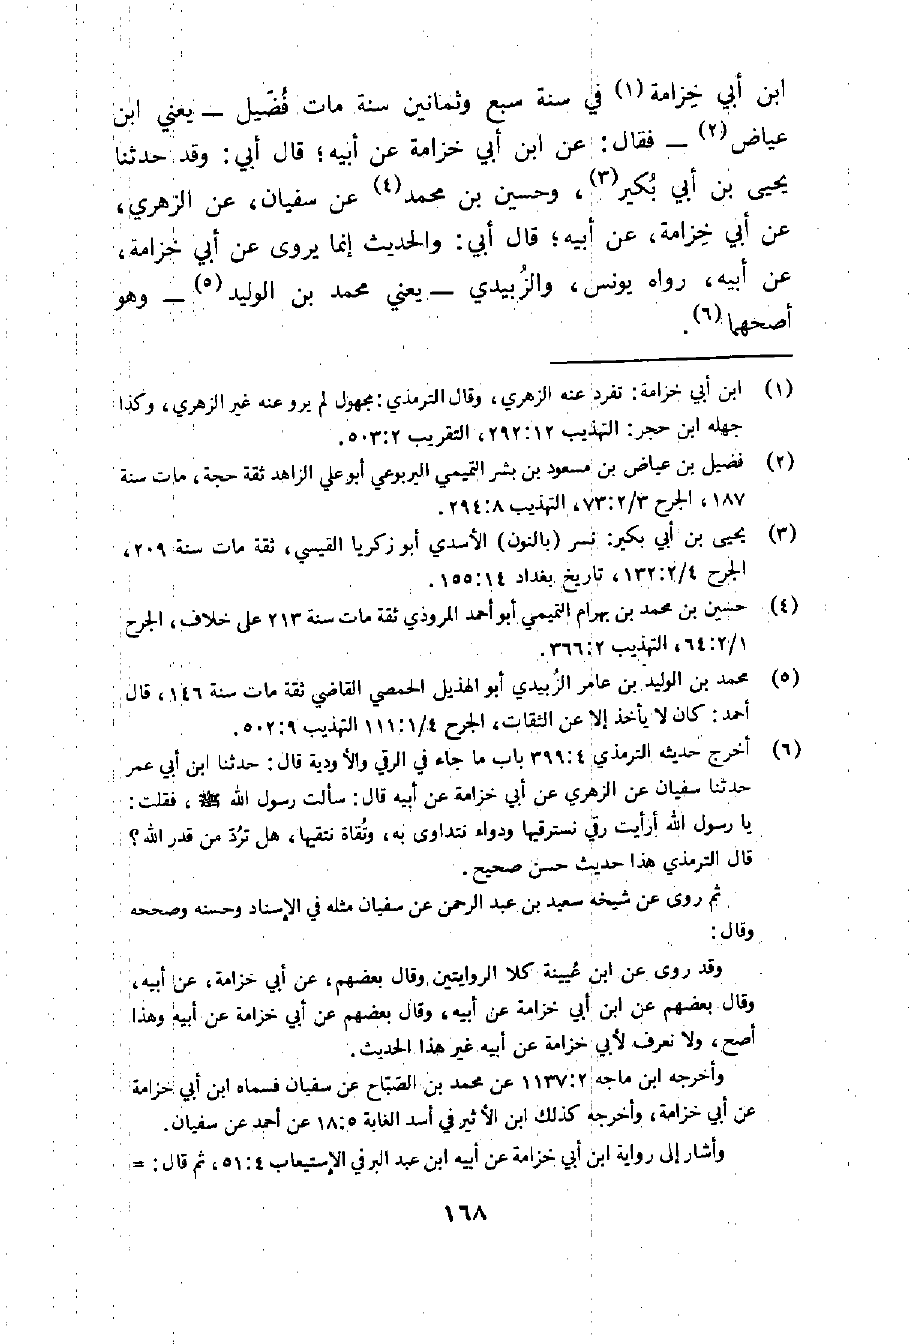 ابن أبي خِزامة (١) في سنة سبع وثمانين سنة مات فُضَيل ــ يعني ابن
عياض (٢) ــ فقال: عن ابن أبي خزامة عن أبيه؛ قال أبي: وقد حدثنا
يحيى بن أبي بُكير (٣)، وحسين بن محمد (٤) عن سفيان، عن الزهري،
عن أبي خِزامة، عن أبيه؛ قال أبي: والحديث إنما يروى عن أبي خزامة،
عن أبيه، رواه يونس، والزُبيدي ــ يعني محمد بن الوليد (٥) ــ وهو
أصحهما (٦).
(١) ابن أبي خزامة: تفرد عنه الزهري، وقال الترمذي: مجهول لم يرو عنه غير الزهري، وكذا
جهله ابن حجر: التهذيب ٢٩٢:١٢، التقريب ٥٠٣:٢.
(٢) فضيل بن عياض بن مسعود بن بشر التميمي اليربوعي أبو علي الزاهد ثقة حجة، مات سنة
١٨٧، الجرح ٧٣:٢/٣، التهذيب ٢٩٤:٨.
(٣) يحيى بن أبي بكير: نسر (بالنون) الأسدي أبو زكريا القيسي، ثقة مات سنة ٢٠٩،
الجرح ١٣٢:٢/٤، تاريخ بغداد ١٥٥:١٤.
(٤) حسين بن محمد بن بهرام التميمي أبو أحمد المروذي ثقة مات سنة ٢١٣ على خلاف، الجرح
٦٤:٢/١، التهذيب ٣٦٦:٢.
(٥) محمد بن الوليد بن عامر الزُبيدي أبو الهذيل الحمصي القاضي ثقة مات سنة ١٤٦، قال
أحمد: كان لا يأخذ إلا عن الثقات، الجرح ١١١:١/٤ التهذيب ٥٠٢:٩.
(٦) أخرج حديثه الترمذي ٣٩٩:٤ باب ما جاء في الرقي والأدوية قال: حدثنا ابن أبي عمر
حدثنا سفيان عن الزهري عن أبي خزامة عن أبيه قال: سألت رسول الله ﷺ، فقلت:
يا رسول الله أرأيت رقي نسترقيها ودواء نتداوى به، وتُقاة نتقيها، هل تردّ من قدر الله؟
قال الترمذي هذا حديث حسن صحيح.
ثم روى عن شيخه سعيد بن عبد الرحمن عن سفيان مثله في الإسناد وحسنه وصححه
وقال:
وقد روى عن ابن عُيينة كلا الروايتين وقال بعضهم، عن أبي خزامة، عن أبيه،
وقال بعضهم عن ابن أبي خزامة عن أبيه، وقال بعضهم عن أبي خزامة عن أبيه وهذا
أصح، ولا نعرف لأبي خزامة عن أبيه غير هذا الحديث.
وأخرجه ابن ماجه ١١٣٧:٢ عن محمد بن الصبّاح عن سفيان فسماه ابن أبي خزامة
عن أبي خزامة، وأخرجه كذلك ابن الأثير في أسد الغابة ١٨:٥ عن أحمد عن سفيان.
وأشار إلى رواية ابن أبي خزامة عن أبيه ابن عبد البر في الإستيعاب ٥١:٤، ثم قال: =
١٦٨